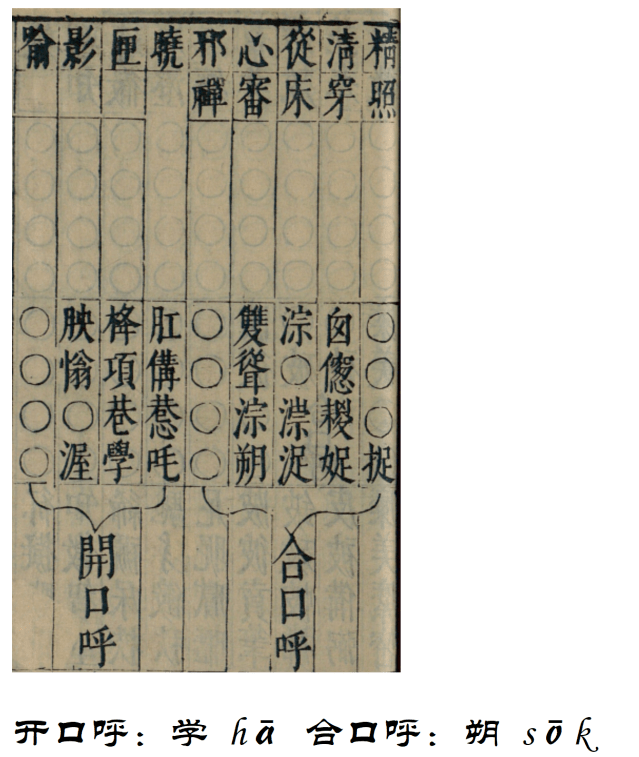 精照○○○○○○○捉
清穿○○○○囱傯稯娖
從床○○○○淙○漴浞
心審○○○○雙聳淙朔
邪禪○○○○○○○○
曉○○○○肛傋吒
匣○○○○栙項巷學
影○○○○胦慃○渥
喻○○○○○○○○
合口呼
開口呼
开口呼：学 hā 合口呼：朔 sōk